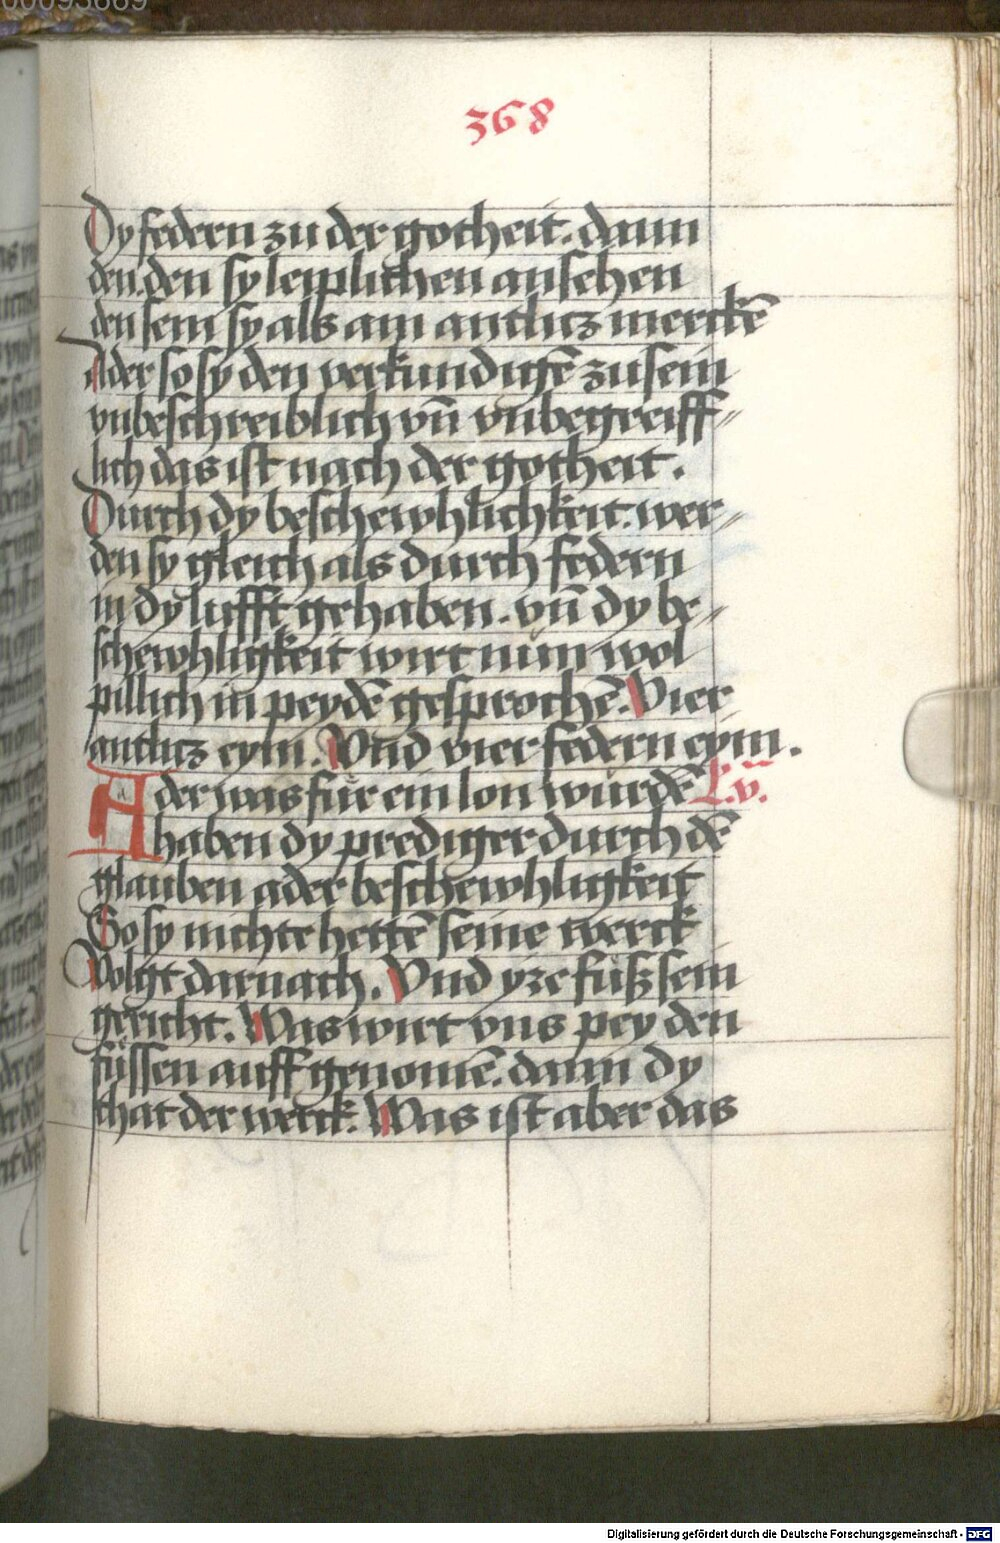 00093669
368
Dy federn zu der gotheit. dann
den. den sy leiplichen ansehen
den sein sy als am antlitz merckē
Ader so sy den verkundigē zu sein
vnbeschreiblich vn̄ vnbegreiff-
lich das ist nach der gotheit.
Durch dy beschewhlichkeit. wer-
den sy gleich als durch federn
in dy lufft gehaben. vn̄ dy be-
schewhligkeit wirt nun wol
pillich in peydē gesprochē. Vier
antlitz eym. Vnd vier federn eym.
Ader was für ein lon würdē L.v.
haben dy prediger durch dē
glauben ader beschewhligkeit
So sy nichte hettē seine werck
Volgt darnach. Vnd yre füß sein
gericht. Was wirt vns pey den
füssen auffgenomē. dann dy
that der werck. Was ist aber das
Digitalisierung gefördert durch die Deutsche Forschungsgemeinschaft - DFG